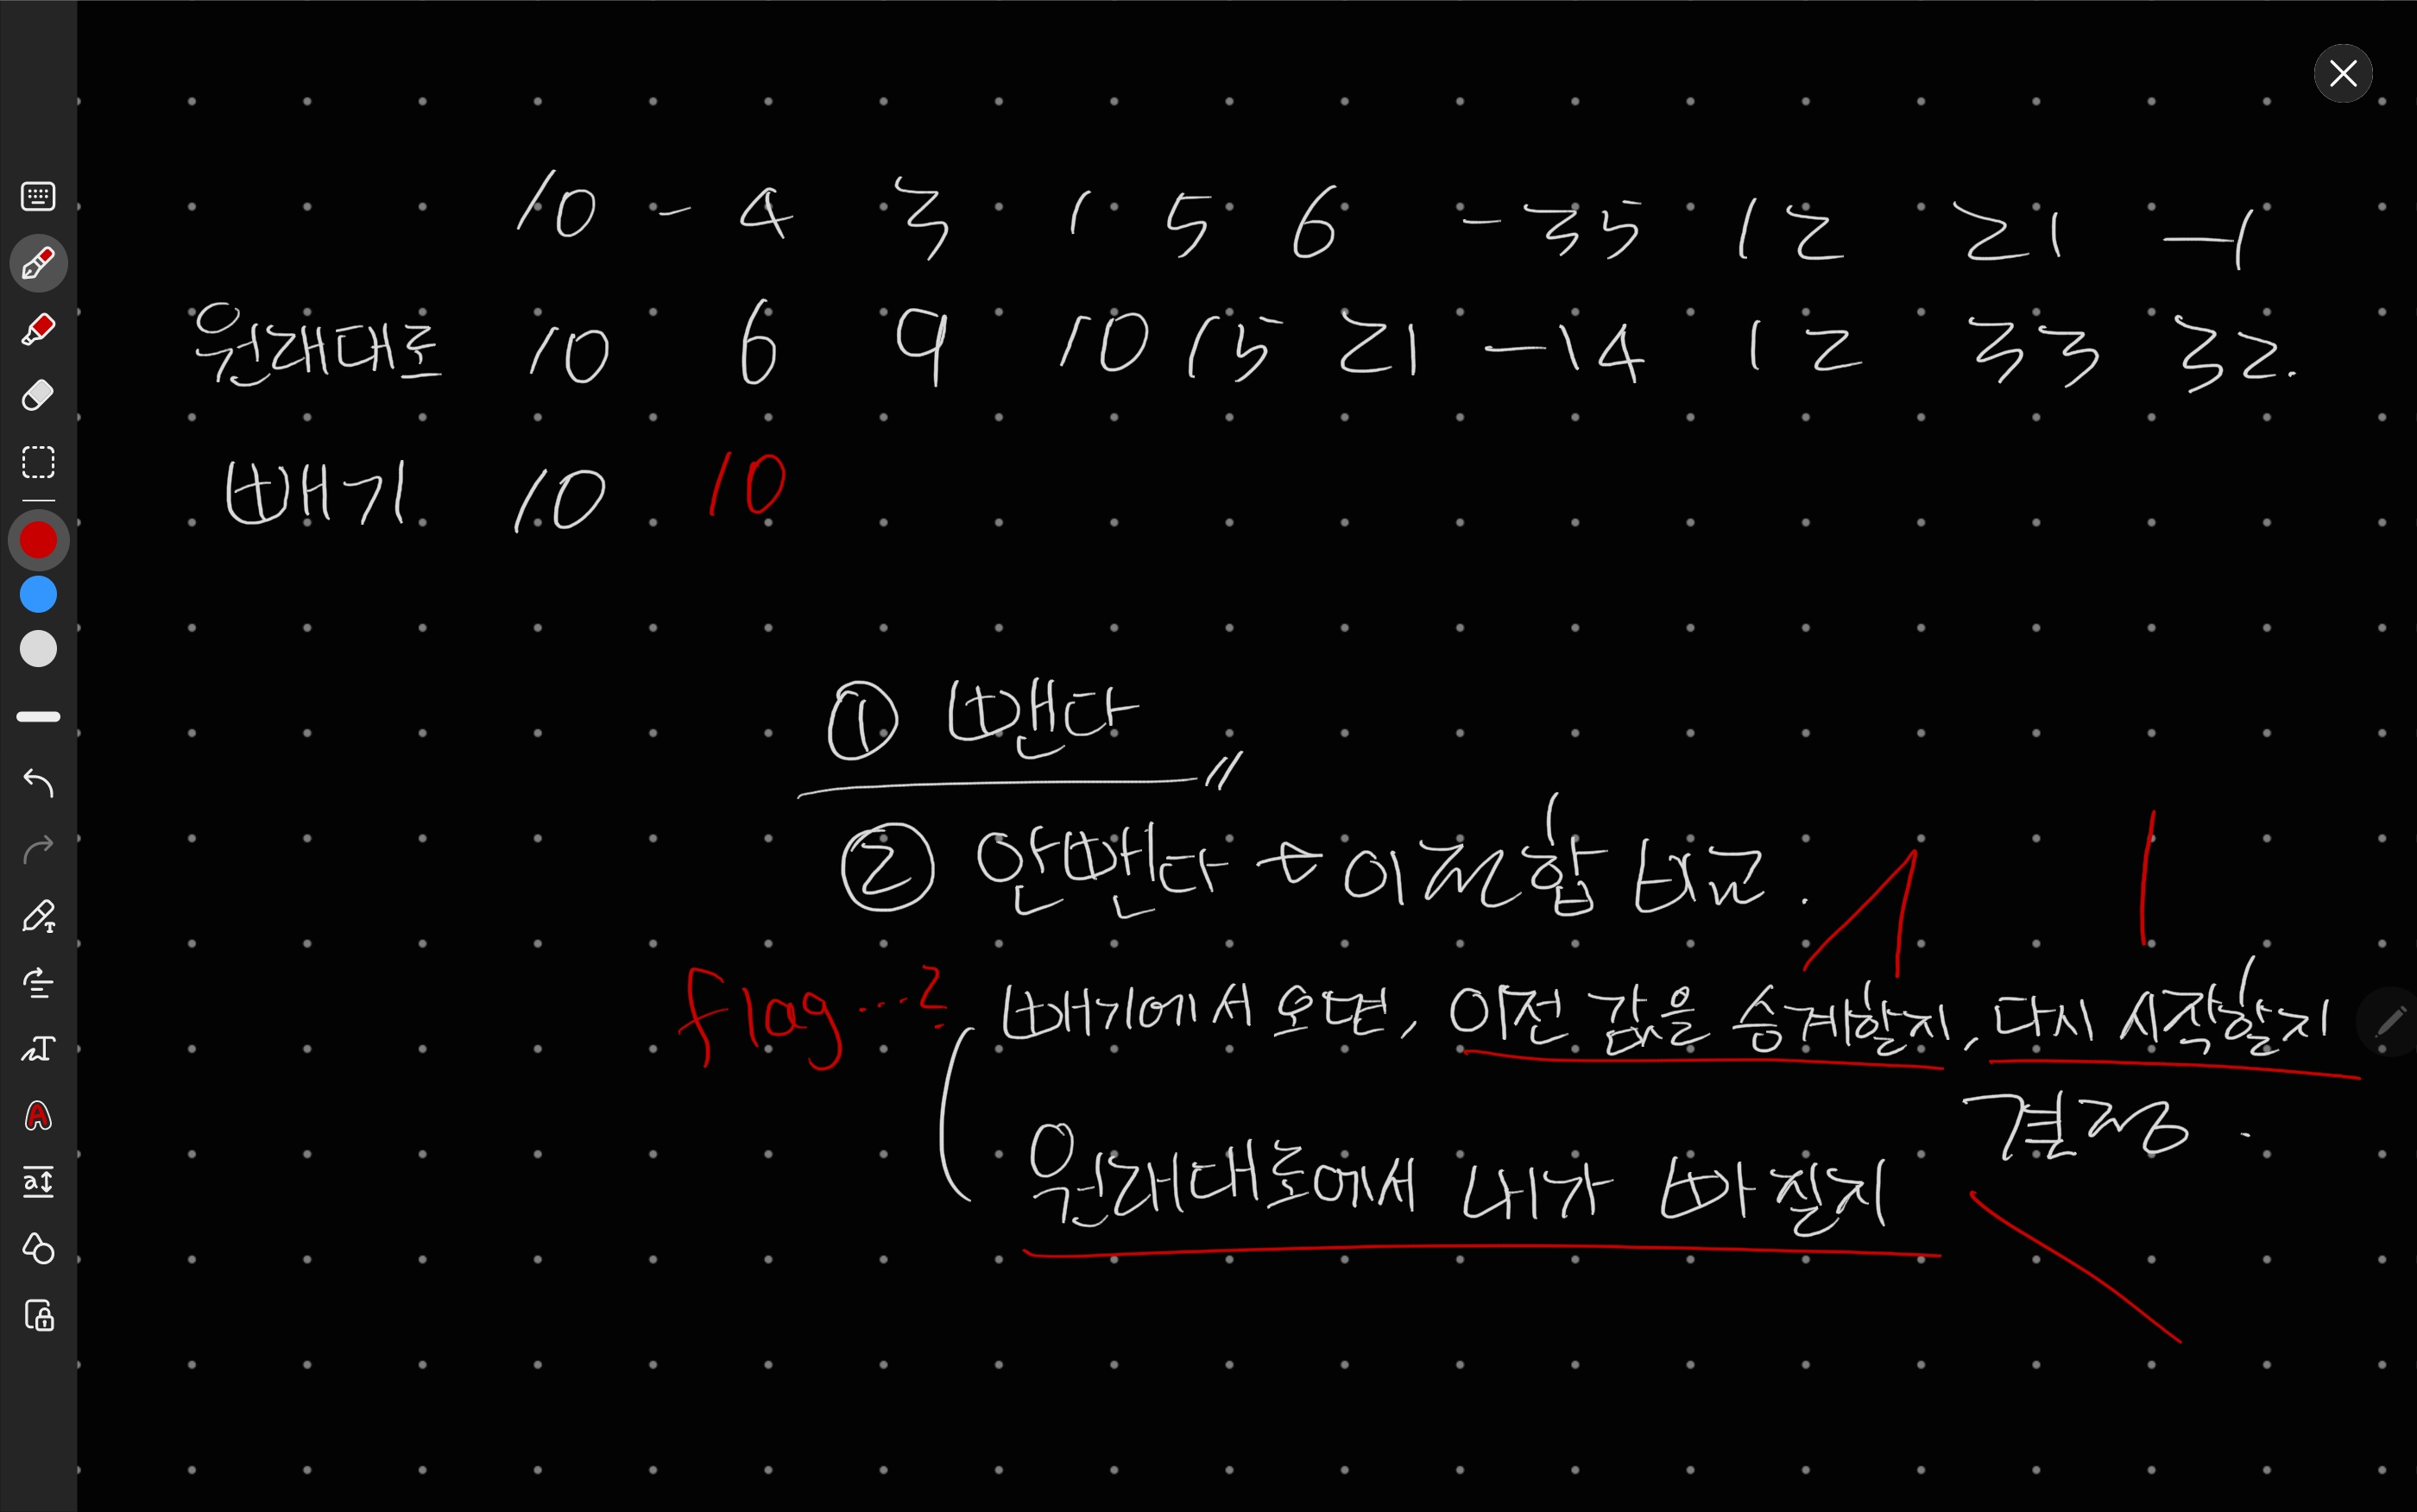 10 -4 3 1 5 6 -35 12 21 -1
원래대로 10 6 9 10 15 21 -14 12 33 32.
빼기 10 10
① 뺀다
② 안뺀다 + 이전합 비교.
flag...? 빼기에서 오면, 이전 값을 승계할지, 다시 시작할지
결정.
원래대로에서 내가 빠질지